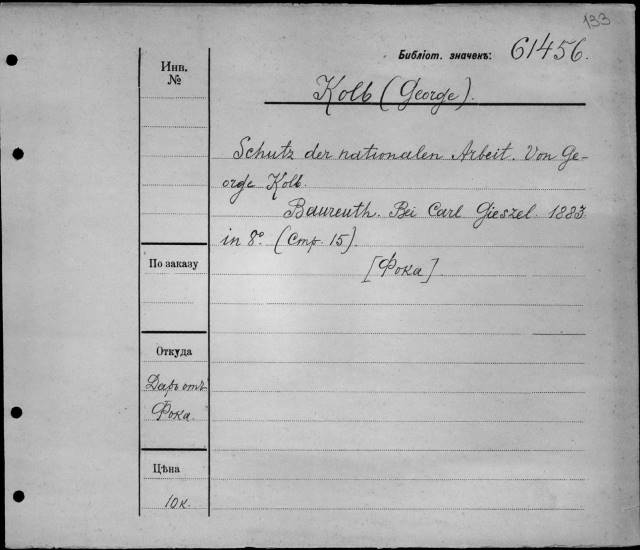 133
Библіот. значекъ: 61456.
Инв.
№
Kolb (George).
Schutz der nationalen Arbeit. Von Ge-
orge Kolb.
Baureuth. Bei Carl Gieszel. 1883.
in 8° (Стр. 15).
[Фока]
По заказу
Откуда
Даръ отъ
Фока.
Цѣна
10 к.